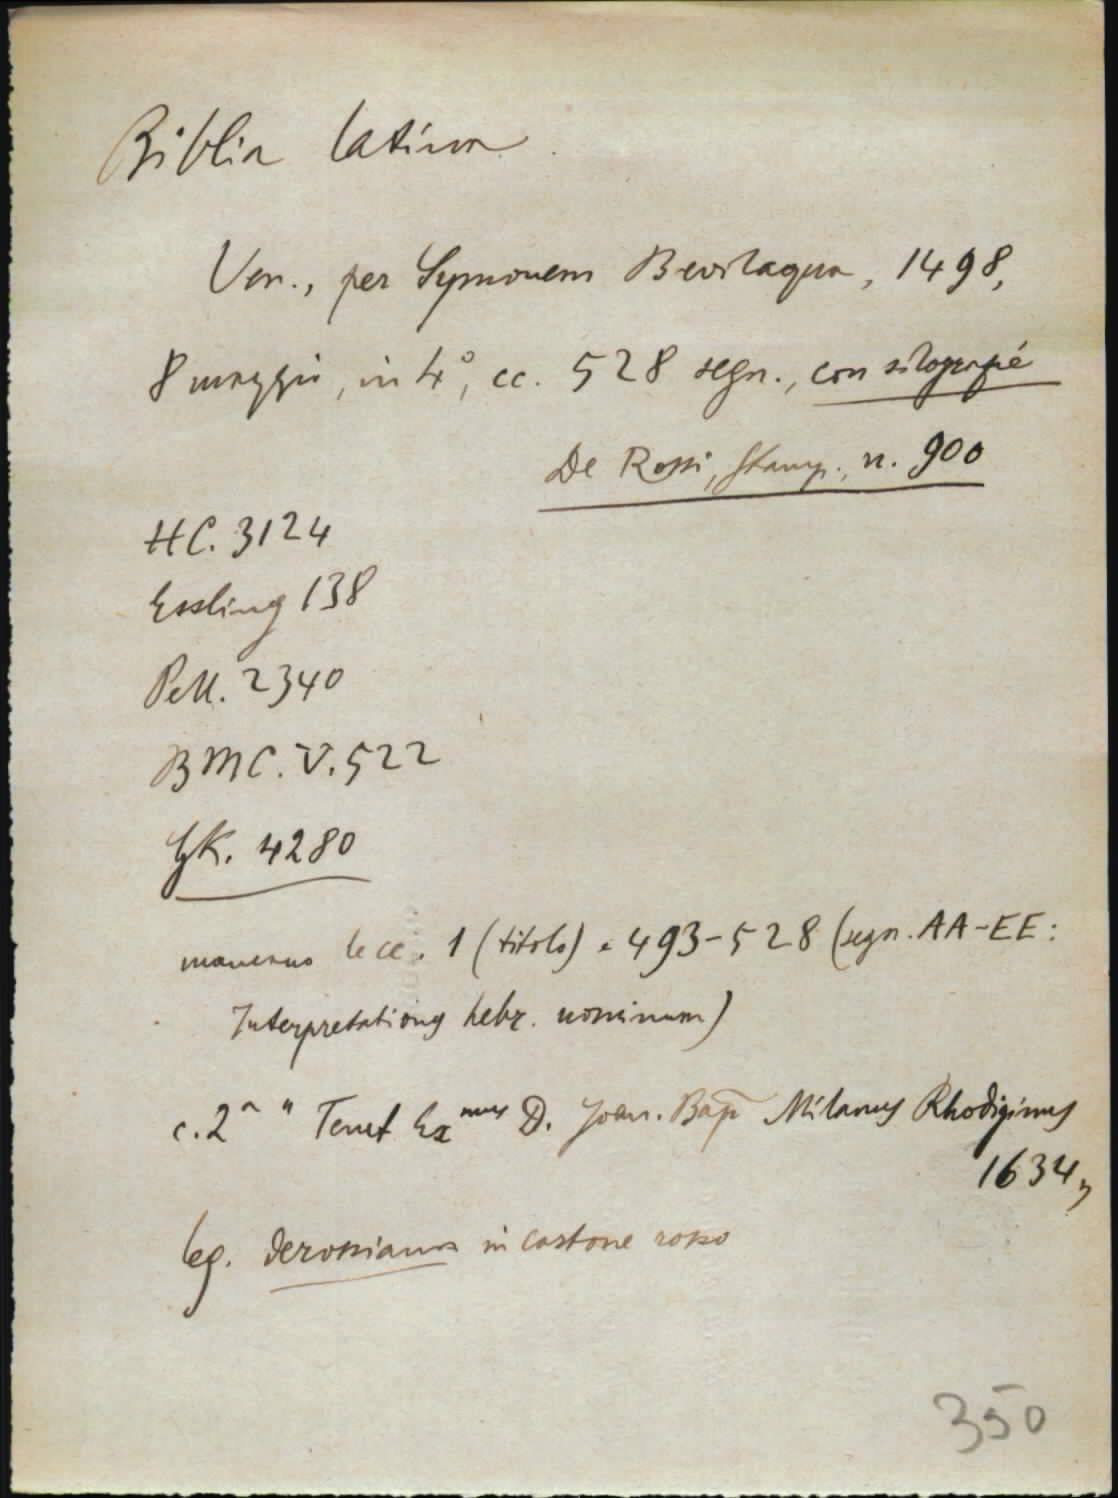 Biblia latina.
Ven., per Symonem Bevilaqua, 1498,
8 maggio, in 4°, cc. 528 segn., con silografie
De Rossi, Stamp., n. 900
HC. 3124
Essling 138
Pell. 2340
BMC. V. 522
GK. 4280
mancano le cc. 1 (titolo) e 493-528 (segn. AA-EE:
Interpretationes hebr. nominum)
c. 2ª " Tenet Exmus D. Joan. Bap Milanus Rhodiginus
1634 "
leg. derossiana in cartone rosso
350